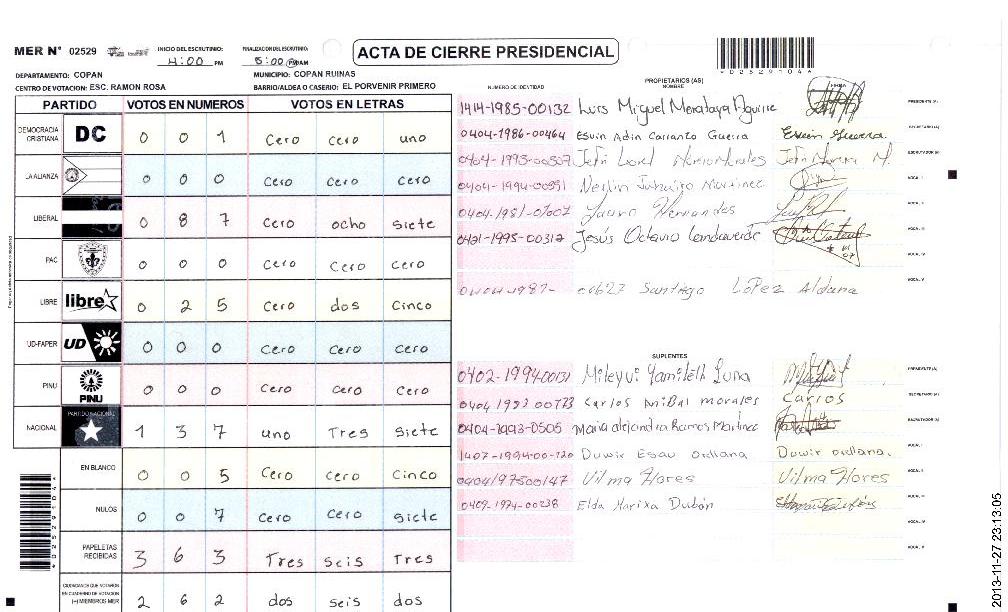 MER Nº 02529
INICIO DEL ESCRUTINIO: 4:00 PM
FINALIZACION DEL ESCRUTINIO: 5:00 PM AM
ACTA DE CIERRE PRESIDENCIAL
*025291046*
DEPARTAMENTO: COPAN MUNICIPIO: COPAN RUINAS
CENTRO DE VOTACION: ESC. RAMON ROSA BARRIO/ALDEA O CASERIO: EL PORVENIR PRIMERO
PARTIDO VOTOS EN NUMEROS VOTOS EN LETRAS
DEMOCRACIA CRISTIANA DC 0 0 1 Cero cero uno
LA ALIANZA 0 0 0 Cero cero cero
LIBERAL 0 8 7 Cero ocho siete
PAC 0 0 0 Cero cero cero
LIBRE libre 0 2 5 Cero dos Cinco
UD-FAPER UD 0 0 0 cero cero cero
PINU PINU 0 0 0 Cero Cero Cero
NACIONAL PARTIDO NACIONAL 1 3 7 uno Tres siete
EN BLANCO 0 0 5 Cero Cero Cinco
NULOS 0 0 7 Cero Cero siete
PAPELETAS RECIBIDAS 3 6 3 Tres seis Tres
CIUDADANOS QUE VOTARON EN CUADERNO DE VOTACION (+) MIEMBROS MER 2 6 2 dos seis dos
NUMERO DE IDENTIDAD PROPIETARIOS (AS) NOMBRE FIRMA
1414-1985-00132 Luis Miguel Aguirre PRESIDENTE (A)
0404-1986-00464 Esvin Adin Carranza Guerra Esvin Guerra. SECRETARIO (A)
ESCRUTADOR (A)
Martinez VOCAL I
Hernandes VOCAL II
0421-1995-00312 Jesús Octavio Landaverde VOCAL III
VOCAL IV
00627 Santiago López Aldana VOCAL V
SUPLENTES
0402-1994-00131 Yamileth Luna PRESIDENTE (A)
0404 1993 00773 Carlos morales Carlos SECRETARIO (A)
0404-1993-0505 Maria alejandra Ramos Martinez ESCRUTADOR (A)
1407-1994-00-120 Duwir Esau ordiana Duwir ordiana. VOCAL I
0404197500147 Vilma Flores Vilma Flores VOCAL II
Elda Marixa VOCAL III
VOCAL IV
VOCAL V
2013-11-27 23:13:05